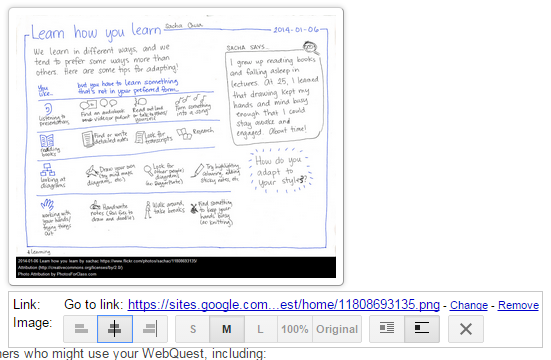 Learn how you learn
Sacha Chua
2014-01-06
We learn in different ways, and we
tend to prefer some ways more than
others. Here are some tips for adapting!
You like...
but you have to learn something
that's not in your preferred form...
Listening to
presentations
Find an audiobook
video or podcast
Read out loud
or talk to others/
yourself
Turn something
into a song!
reading
books
Find or write
detailed notes
Look for
transcripts
Research
looking at
diagrams
Draw your own
(try mind maps
diagrams, etc.)
Look for
other people's
diagrams
Try highlighting
colouring, adding
sticky notes, etc
working with
your hands/
trying things
out
Handwrite
notes
to draw and doodle)
Walk around,
take breaks
Find something
to keep your
hands busy
(or knitting)
SACHA SAYS...
I grew up reading books
and falling asleep in
lectures. At 25, I learned
that drawing kept my
hands and mind busy
enough that I could
stay awake and
engaged. About time!
How do you
adapt to
your styles?
#learning
2014-01-06 Learn how you learn by sachac https://www.flickr.com/photos/sachac/11808693135/
Attribution (http://creativecommons.org/licenses/by/2.0/)
Photo Attribution by PhotosForClass.com
Link: Go to link: https://sites.google.com...est/home/11808693135.png - Change - Remove
Image: S M L 100% Original
ners who might use your WebQuest, including: